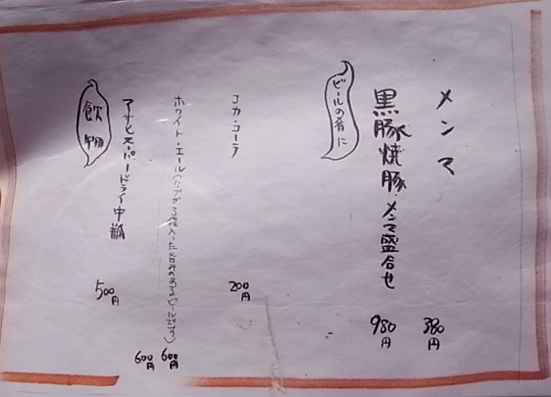 メンマ 380円
黒豚焼豚・メンマ盛合せ 980円
ビールの肴に
コカ・コーラ 200円
ホワイト・エール 600円
600円
アサヒスーパードライ中瓶 500円
飲物